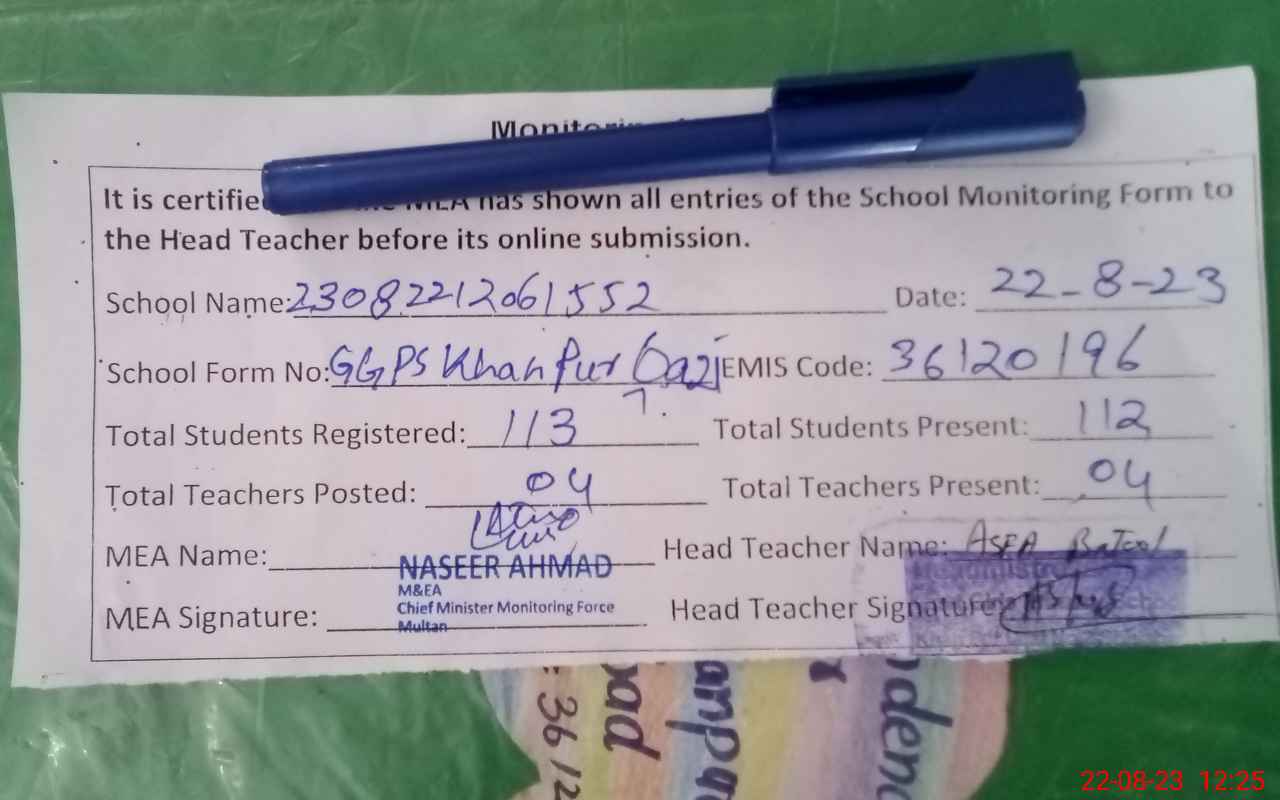 Monitoring
It is certified the MEA has shown all entries of the School Monitoring Form to
the Head Teacher before its online submission.
School Name: 23082212061552 Date: 22-8-23
School Form No: GGPS Khanpur Qazi EMIS Code: 36120196
Total Students Registered: 113 Total Students Present: 112
Total Teachers Posted: 04 Total Teachers Present: 04
MEA Name: Head Teacher Name: ASFA Batool
NASEER AHMAD
M&EA
Chief Minister Monitoring Force
Multan
MEA Signature: Head Teacher Signature:
: 36 12
22-08-23 12:25